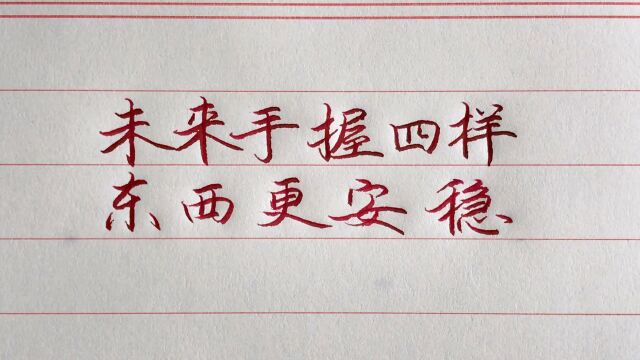 未来手握四样
东西更安稳